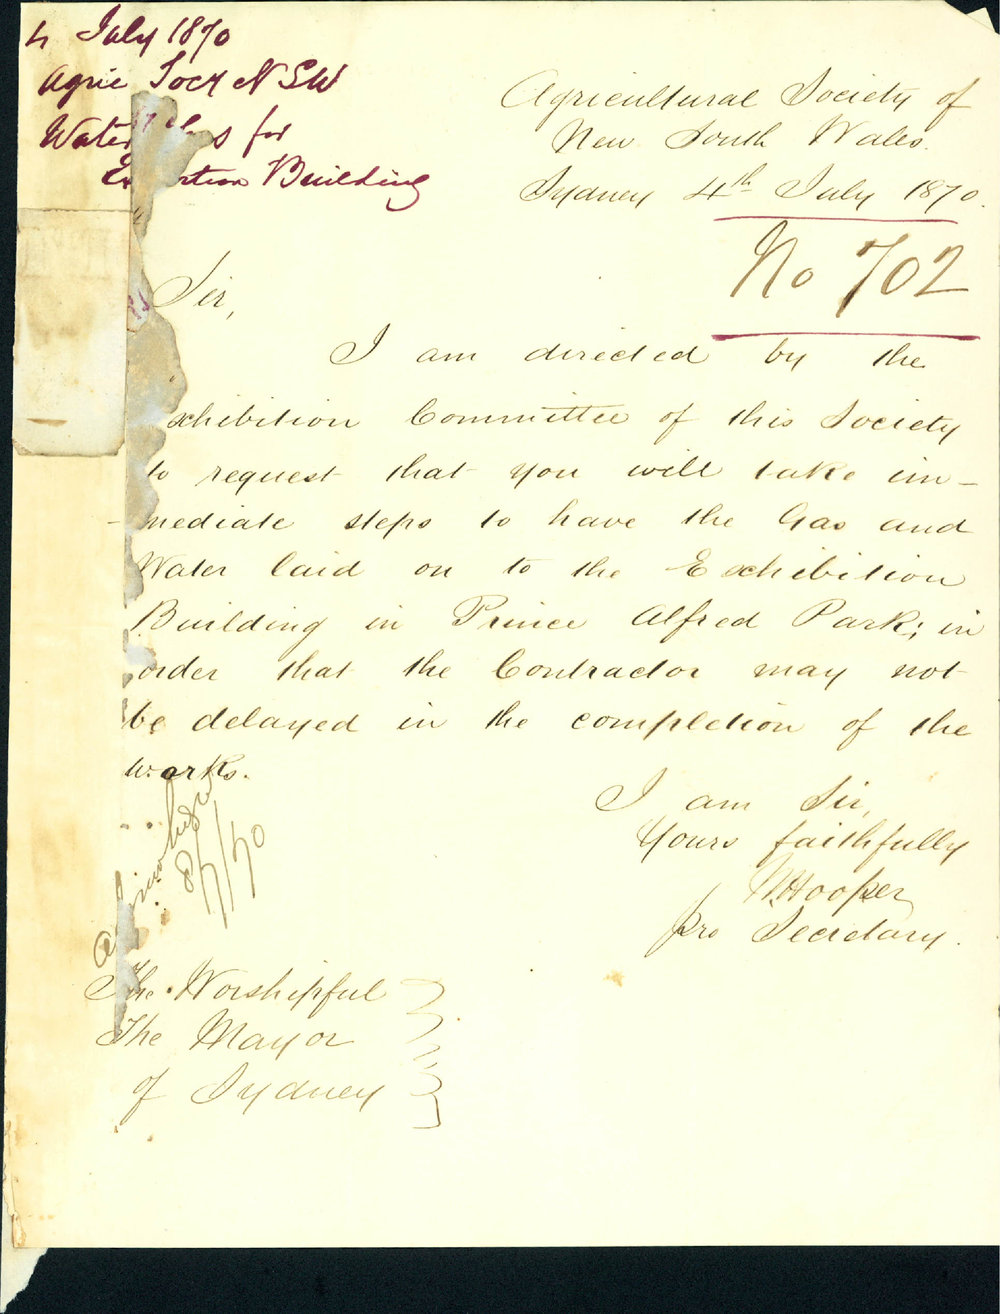 4 July 1870
Agric Socy N S W
Water for
Ex ition Building
Agricultural Society of
New South Wales.
Sydney 4th July 1870.
No 702
Sir,
I am directed by the
xhibition Committee of this Society
to request that you will take im-
mediate steps to have the Gas and
Water laid on to the Exhibition
Building in Prince Alfred Park; in
order that the Contractor may not
be delayed in the completion of the
works.
I am Sir,
Yours faithfully
Hooper
pro Secretary.
8/7/70
The Worshipful
The Mayor
of Sydney